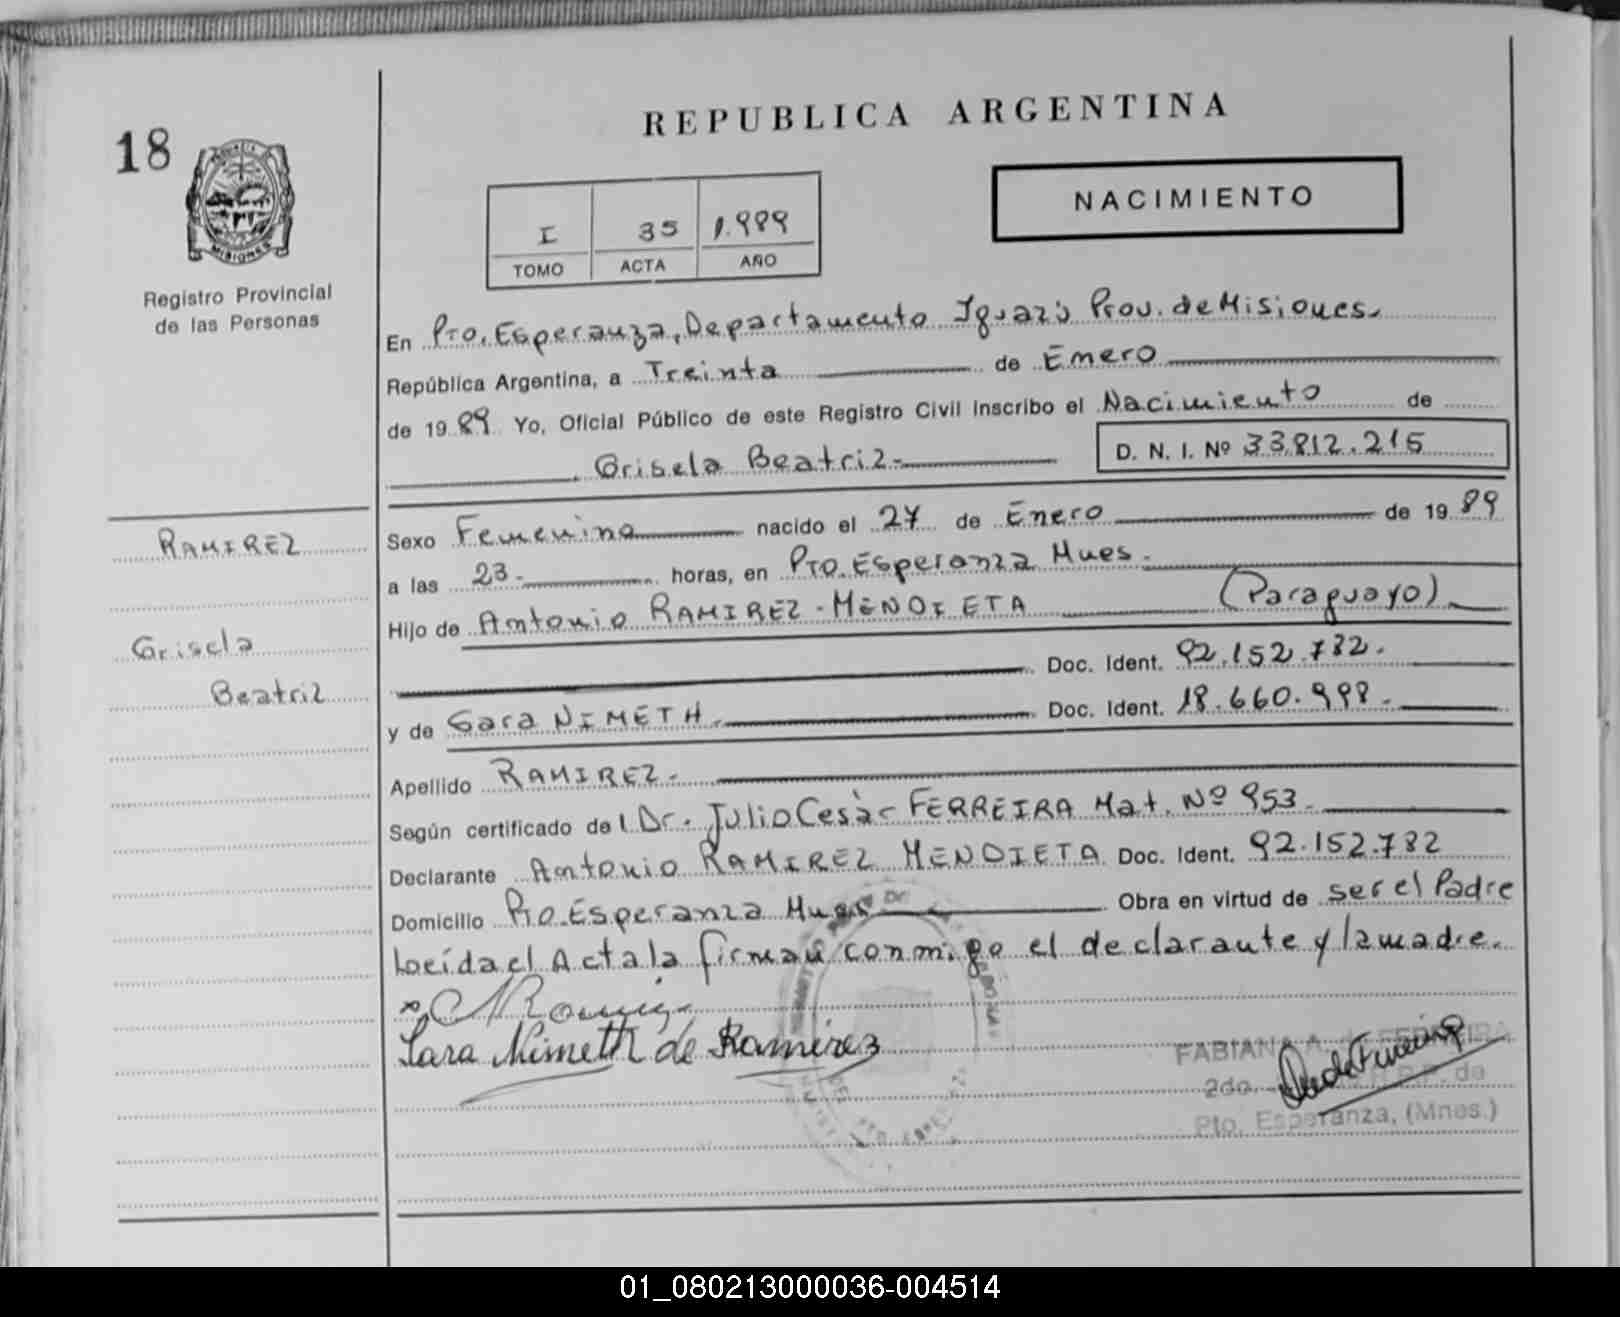 18
REPUBLICA ARGENTINA
NACIMIENTO
I 35 1.989
TOMO ACTA AÑO
MISIONES
Registro Provincial
de las Personas
En Pto. Esperanza, Departamento Iguazú Prov. de Misiones.
República Argentina, a Treinta de Enero
de 1989 Yo, Oficial Público de este Registro Civil Inscribo el Nacimiento de
Grisela Beatriz.- D. N. I. Nº 33.812.215
RAMIREZ
Grisela
Beatriz
Sexo Femenino nacido el 27 de Enero de 1989
a las 23.- horas, en Pto. Esperanza Mnes.
Hijo de Antonio RAMIREZ - MENDIETA (Paraguayo).
Doc. Ident. 92.152.782.
y de Sara NIMETH. Doc. Ident. 18.660.998.
Apellido RAMIREZ.
Según certificado del Dr. Julio Cesàr FERREIRA Mat. Nº 953.
Declarante Antonio RAMIREZ MENDIETA Doc. Ident. 92.152.782
Domicilio Pto. Esperanza Mnes Obra en virtud de ser el Padre
Leída el Acta la firman conmigo el declarante y la madre.
Sara Nimeth de Ramirez
FABIANA A. de FERREIRA
2do. de
Pto. Esperanza, (Mnes.)
01_080213000036-004514